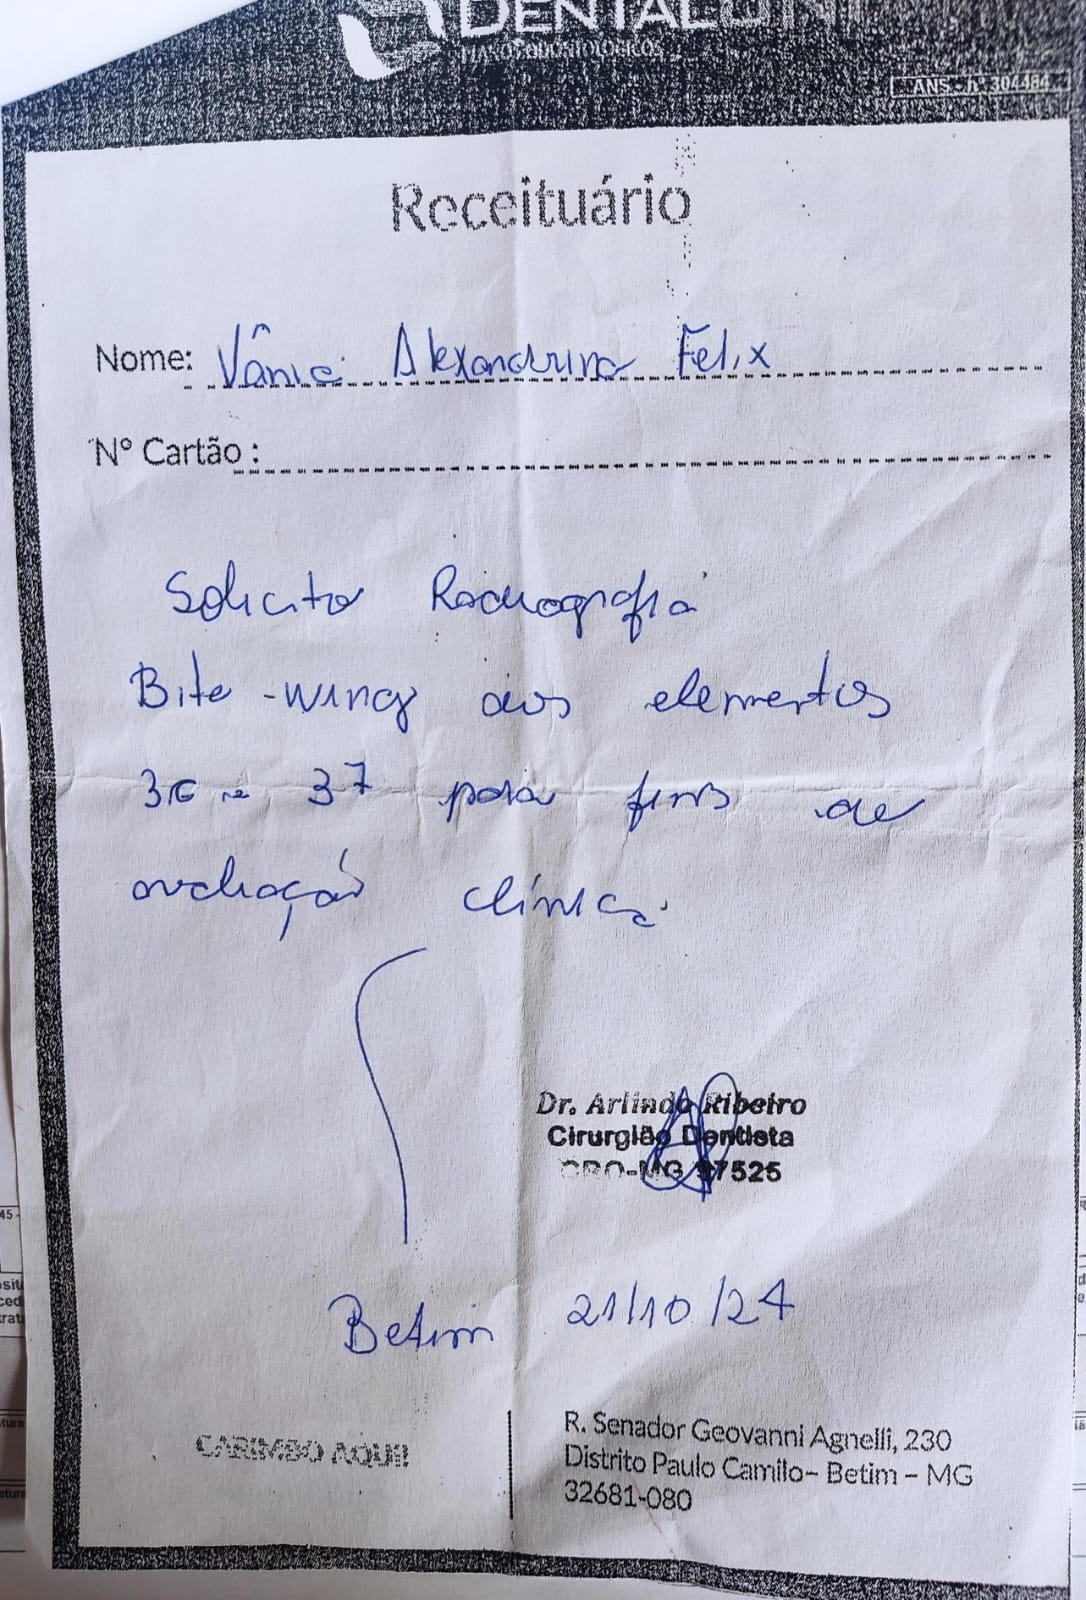 DENTALUNI
PLANOS ODONTOLÓGICOS
ANS - nº 304484
Receituário
Nome: Vânia Alexandrina Felix
Nº Cartão :
Solicito Radiografia
Bite-wing dos elementos
36 e 37 para fins de
avaliação clínica.
Dr. Arlindo Ribeiro
Cirurgião Dentista
CRO-MG 37525
Betim 21/10/24
CARIMBO AQUI!
R. Senador Geovanni Agnelli, 230
Distrito Paulo Camilo- Betim - MG
32681-080